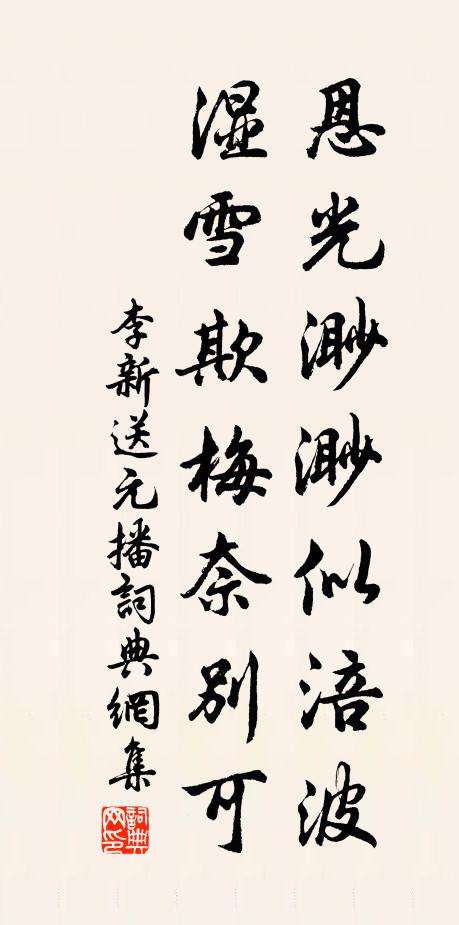 恩光渺渺似涪波
湿雪欺梅奈别可
李新送元播詞典網集
詞典網印